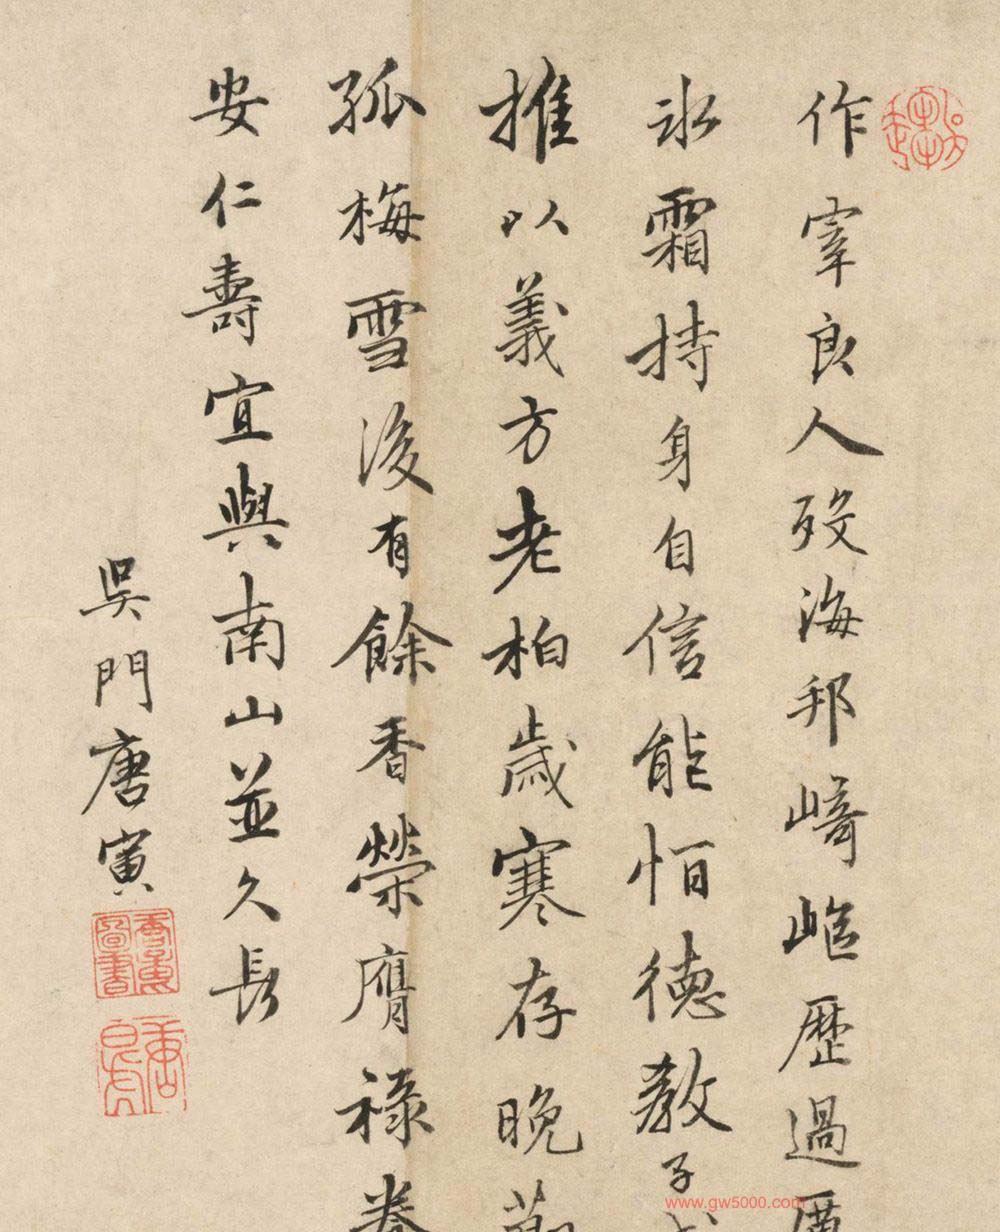 作宰良人歿海邦崎嶇歷過
冰霜持身自信能怕德教子
推以義方老柏歲寒存晚
孤梅雪後有餘香榮膺祿養
安仁壽宜與南山並久長
吳門唐寅
www.gw5000.com